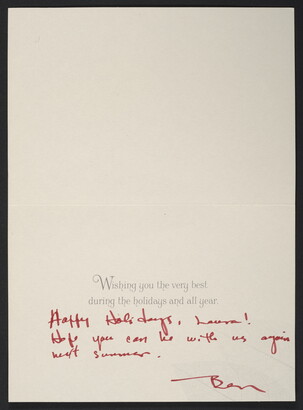 Wishing you the very best
during the holidays and all year.
Happy Holidays, Laura!
Hope you can be with us again
next summer.
Ben